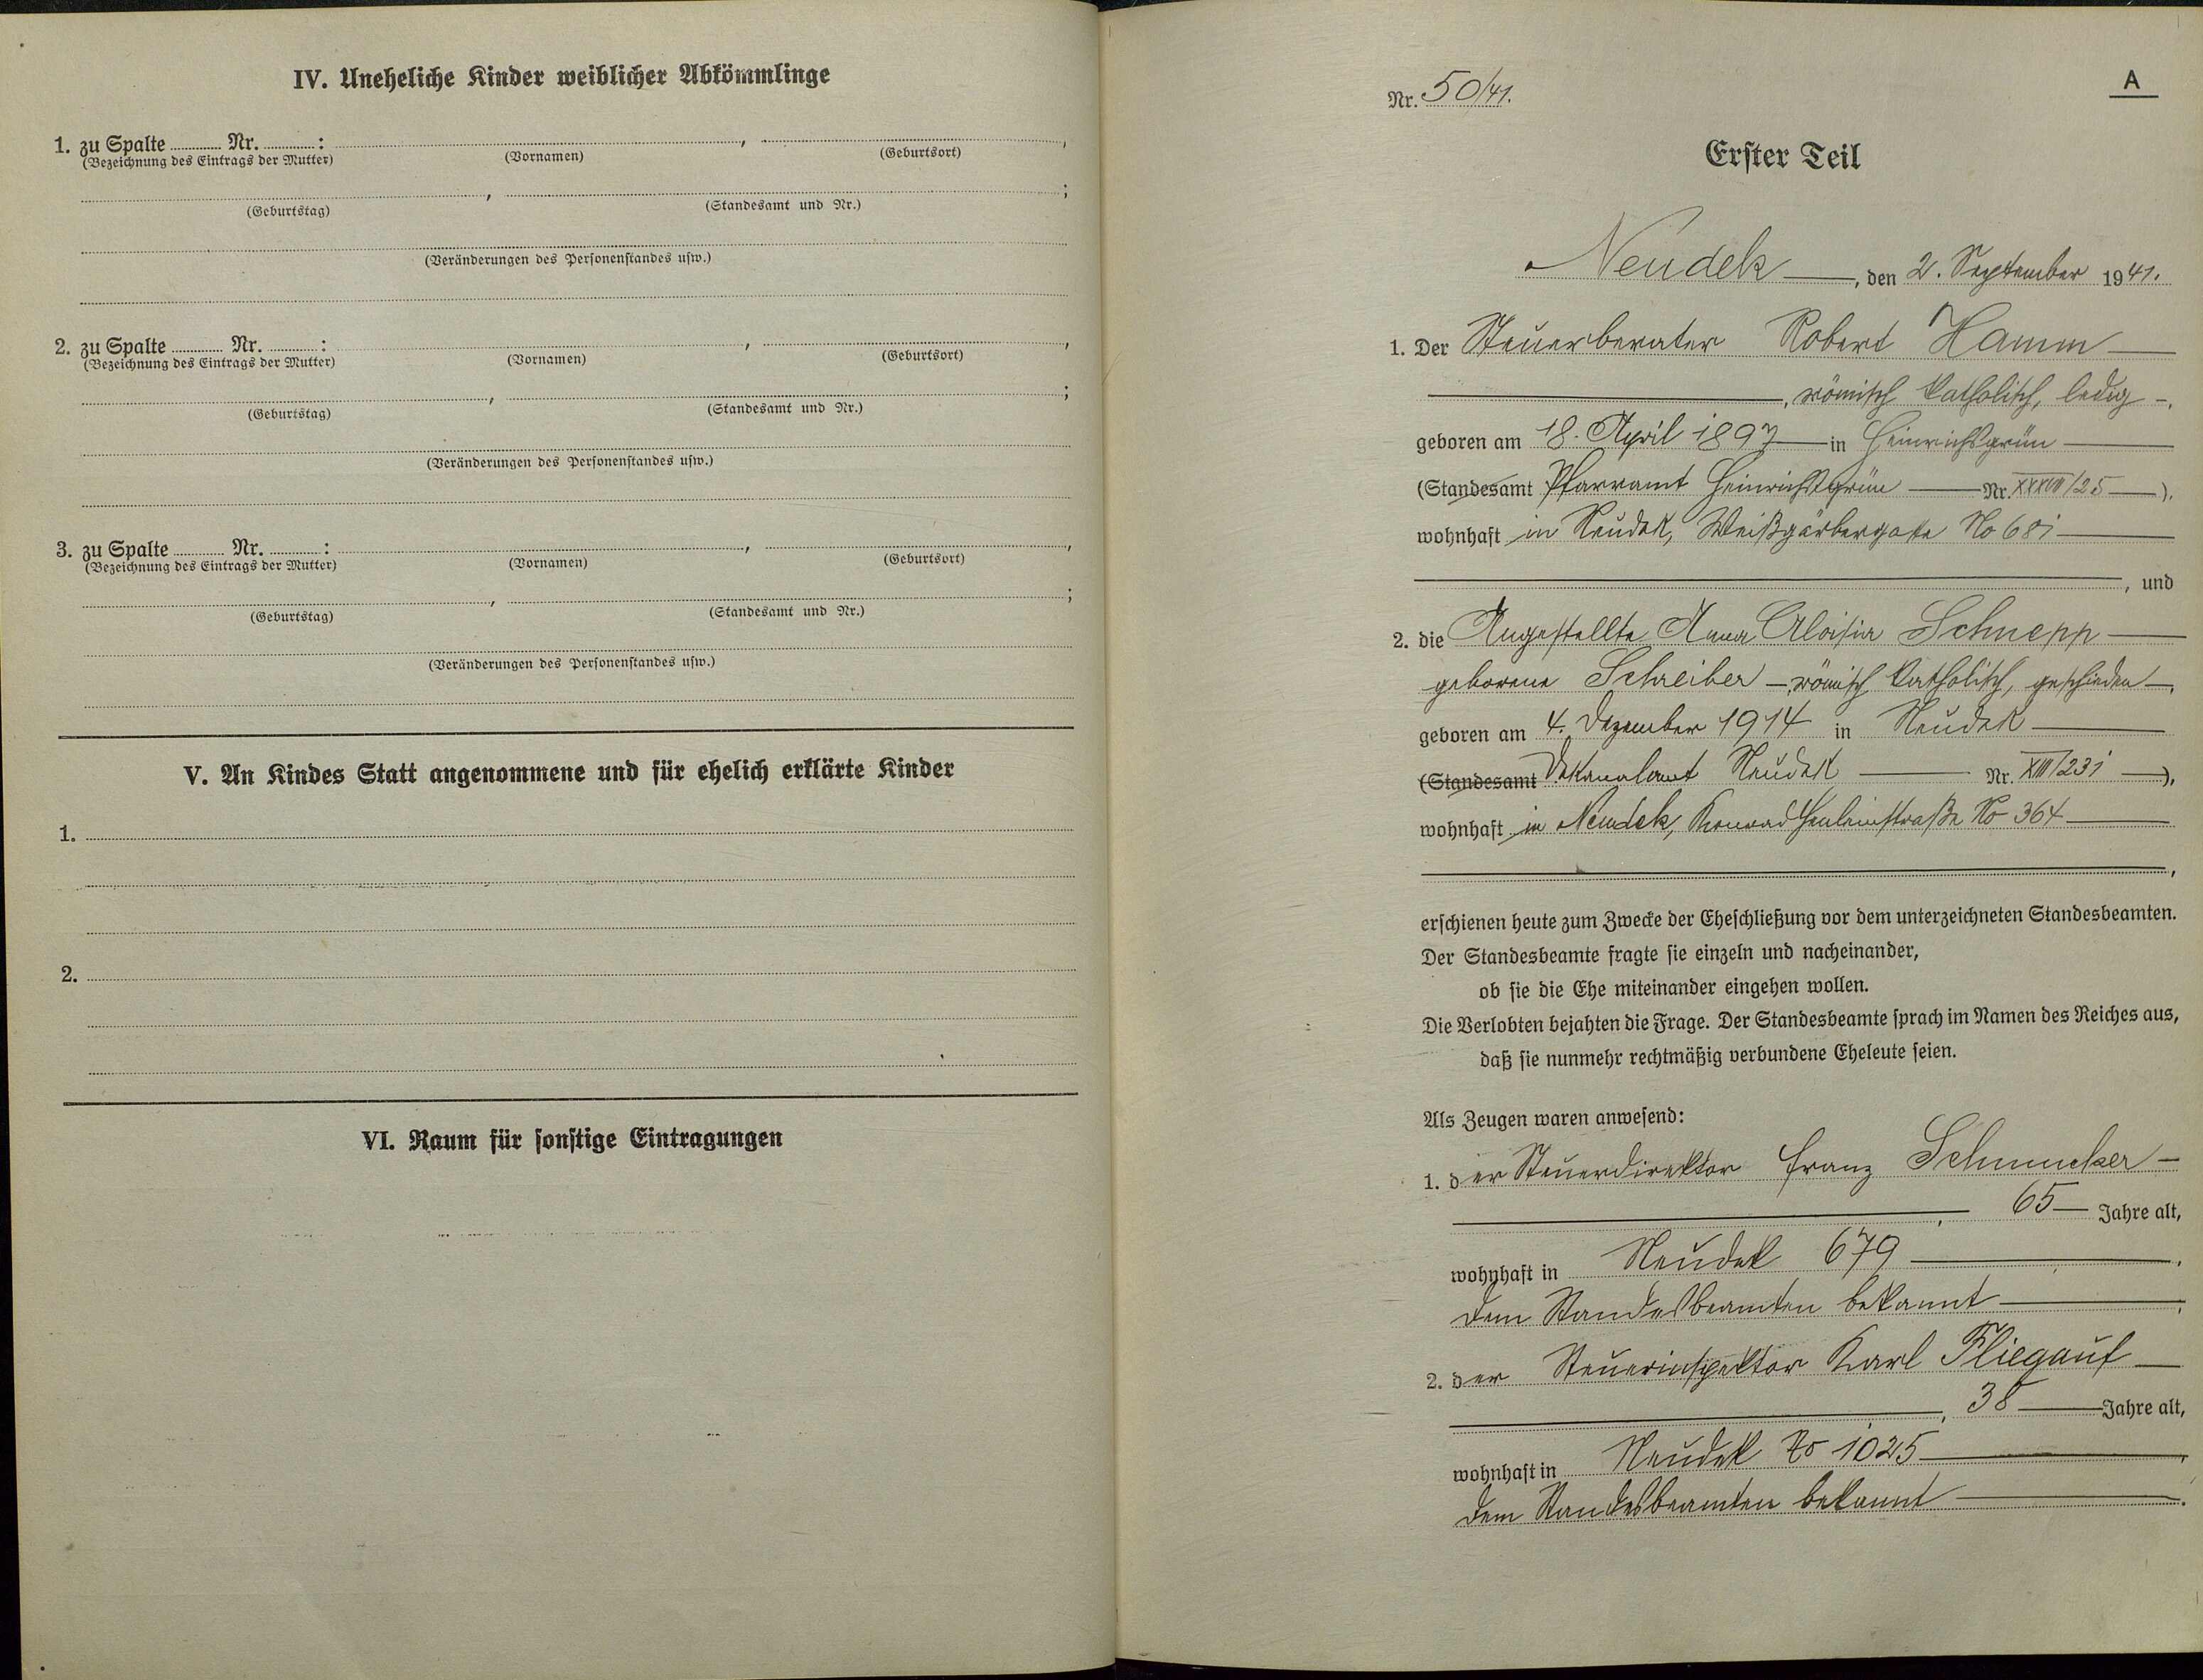 IV. Uneheliche Kinder weiblicher Abkömmlinge
1. zu Spalte ........ Nr. ........ : , ,
(Bezeichnung des Eintrags der Mutter) (Vornamen) (Geburtsort)
, ;
(Geburtstag) (Standesamt und Nr.)
(Veränderungen des Personenstandes usw.)
2. zu Spalte ........ Nr. ........ : , ,
(Bezeichnung des Eintrags der Mutter) (Vornamen) (Geburtsort)
, ;
(Geburtstag) (Standesamt und Nr.)
(Veränderungen des Personenstandes usw.)
3. zu Spalte ........ Nr. ........ : , ,
(Bezeichnung des Eintrags der Mutter) (Vornamen) (Geburtsort)
, ;
(Geburtstag) (Standesamt und Nr.)
(Veränderungen des Personenstandes usw.)
V. An Kindes Statt angenommene und für ehelich erklärte Kinder
1.
2.
VI. Raum für sonstige Eintragungen
A
Nr. 50/41.
Erster Teil
Neudek —, den 2. September 1941.
1. Der Steuerberater Robert Hamm —
—, römisch katholisch, ledig —,
geboren am 18. April 1897 — in Heinrichsgrün —
(Standesamt Pfarramt Heinrichsgrün — Nr. XXXVII/25 —),
wohnhaft in Neudek, Weißgärbergasse No 681 —
—, und
2. die Angestellte Anna Aloisia Schnepp —
geborene Schreiber — römisch katholisch, geschieden —,
geboren am 4. Dezember 1914 in Neudek —
(Standesamt Dekanalamt Neudek — Nr. XIII/231 —),
wohnhaft in Neudek, Konrad Henleinstraße No 364 —
—,
erschienen heute zum Zwecke der Eheschließung vor dem unterzeichneten Standesbeamten.
Der Standesbeamte fragte sie einzeln und nacheinander,
ob sie die Ehe miteinander eingehen wollen.
Die Verlobten bejahten die Frage. Der Standesbeamte sprach im Namen des Reiches aus,
daß sie nunmehr rechtmäßig verbundene Eheleute seien.
Als Zeugen waren anwesend:
1. der Steuerdirektor Franz Schmucker —
—, 65 — Jahre alt,
wohnhaft in Neudek 679 —,
dem Standesbeamten bekannt —;
2. der Steuerinspektor Karl Fliegauf —
—, 38 — Jahre alt,
wohnhaft in Neudek No 1025 —,
dem Standesbeamten bekannt —.